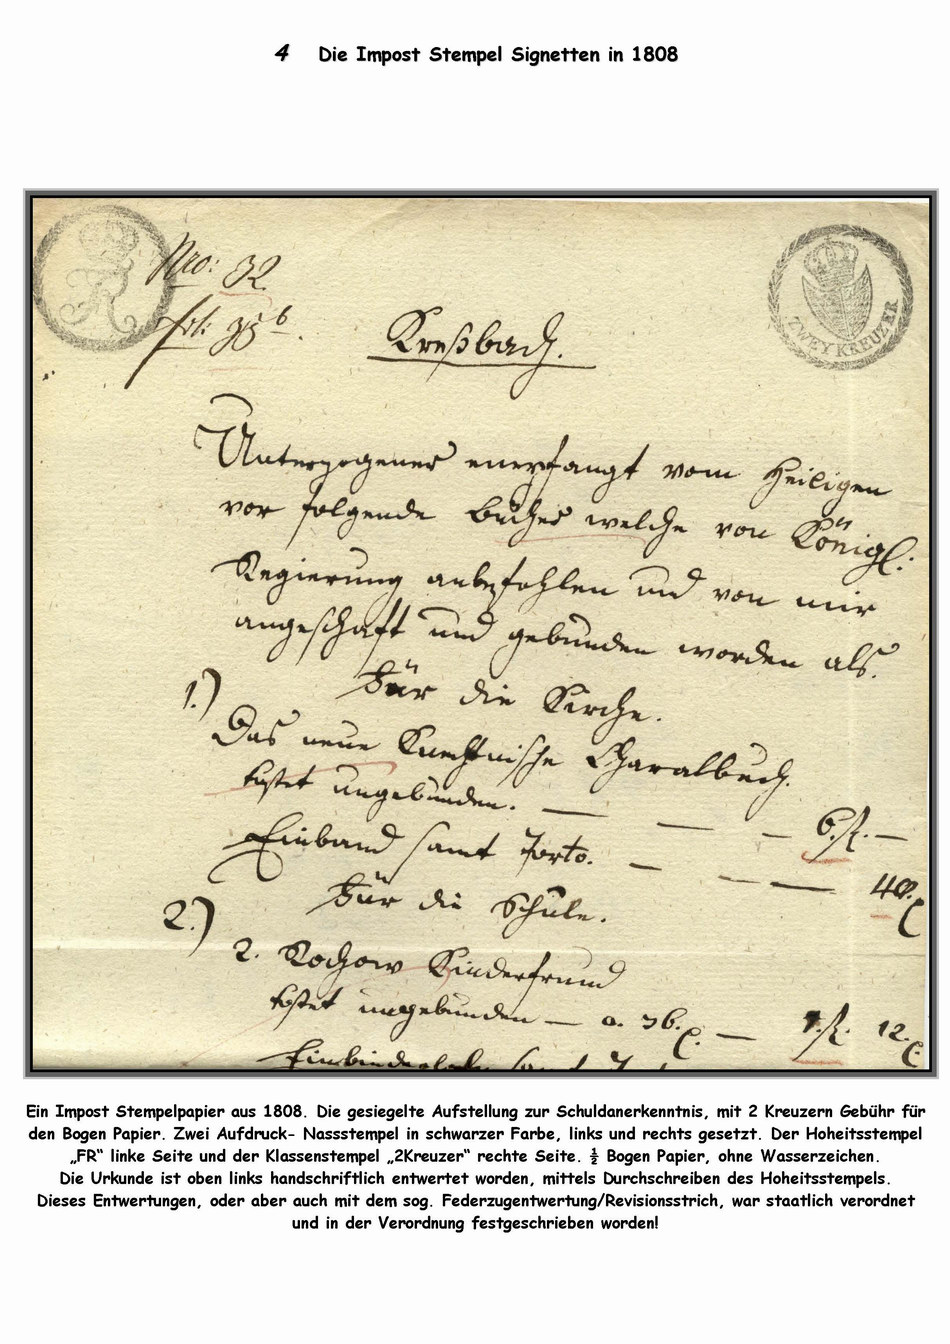 4 Die Impost Stempel Signetten in 1808
Nro: 32.
fol: 35b.
Kreßbach.
ZWEY KREUZER
FR
Unterzogener empfangt vom Heiligen
vor folgende Bücher welche von Königl:
Regierung anbefohlen und von mir
angeschafft und gebunden worden als.
1.) Für die Kirche.
Das neue Knechtische Choralbuch.
kostet ungebunden. — — — 6.f. —
Einband samt Porto. — — — 40.
2.) Für die Schule.
2. Rochow Kinderfreund
kostet ungebunden — a. 36. — 1.f. 12.
samt
Ein Impost Stempelpapier aus 1808. Die gesiegelte Aufstellung zur Schuldanerkenntnis, mit 2 Kreuzern Gebühr für
den Bogen Papier. Zwei Aufdruck- Nassstempel in schwarzer Farbe, links und rechts gesetzt. Der Hoheitsstempel
„FR“ linke Seite und der Klassenstempel „2Kreuzer“ rechte Seite. ½ Bogen Papier, ohne Wasserzeichen.
Die Urkunde ist oben links handschriftlich entwertet worden, mittels Durchschreiben des Hoheitsstempels.
Dieses Entwertungen, oder aber auch mit dem sog. Federzugentwertung/Revisionsstrich, war staatlich verordnet
und in der Verordnung festgeschrieben worden!